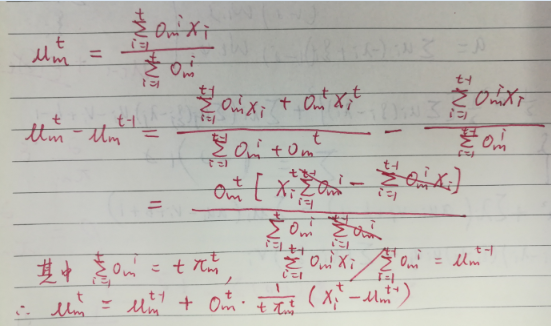 μ_m^t = \frac{\sum_{i=1}^{t} o_m^i x_i}{\sum_{i=1}^{t} o_m^i}
μ_m^t - μ_m^{t-1} = \frac{\sum_{i=1}^{t-1} o_m^i x_i + o_m^t x_i^t}{\sum_{i=1}^{t-1} o_m^i + o_m^t} - \frac{\sum_{i=1}^{t-1} o_m^i x_i}{\sum_{i=1}^{t-1} o_m^i}
= \frac{o_m^t [ x_i^t \sum_{i=1}^{t-1} o_m^i - \sum_{i=1}^{t-1} o_m^i x_i ]}{\sum_{i=1}^{t} o_m^i \sum_{i=1}^{t-1} o_m^i}
其中 \sum_{i=1}^{t} o_m^i = t π_m^t, \sum_{i=1}^{t-1} o_m^i x_i / \sum_{i=1}^{t-1} o_m^i = μ_m^{t-1}
∴ μ_m^t = μ_m^{t-1} + o_m^t · \frac{1}{t π_m^t} ( x_i^t - μ_m^{t-1} )